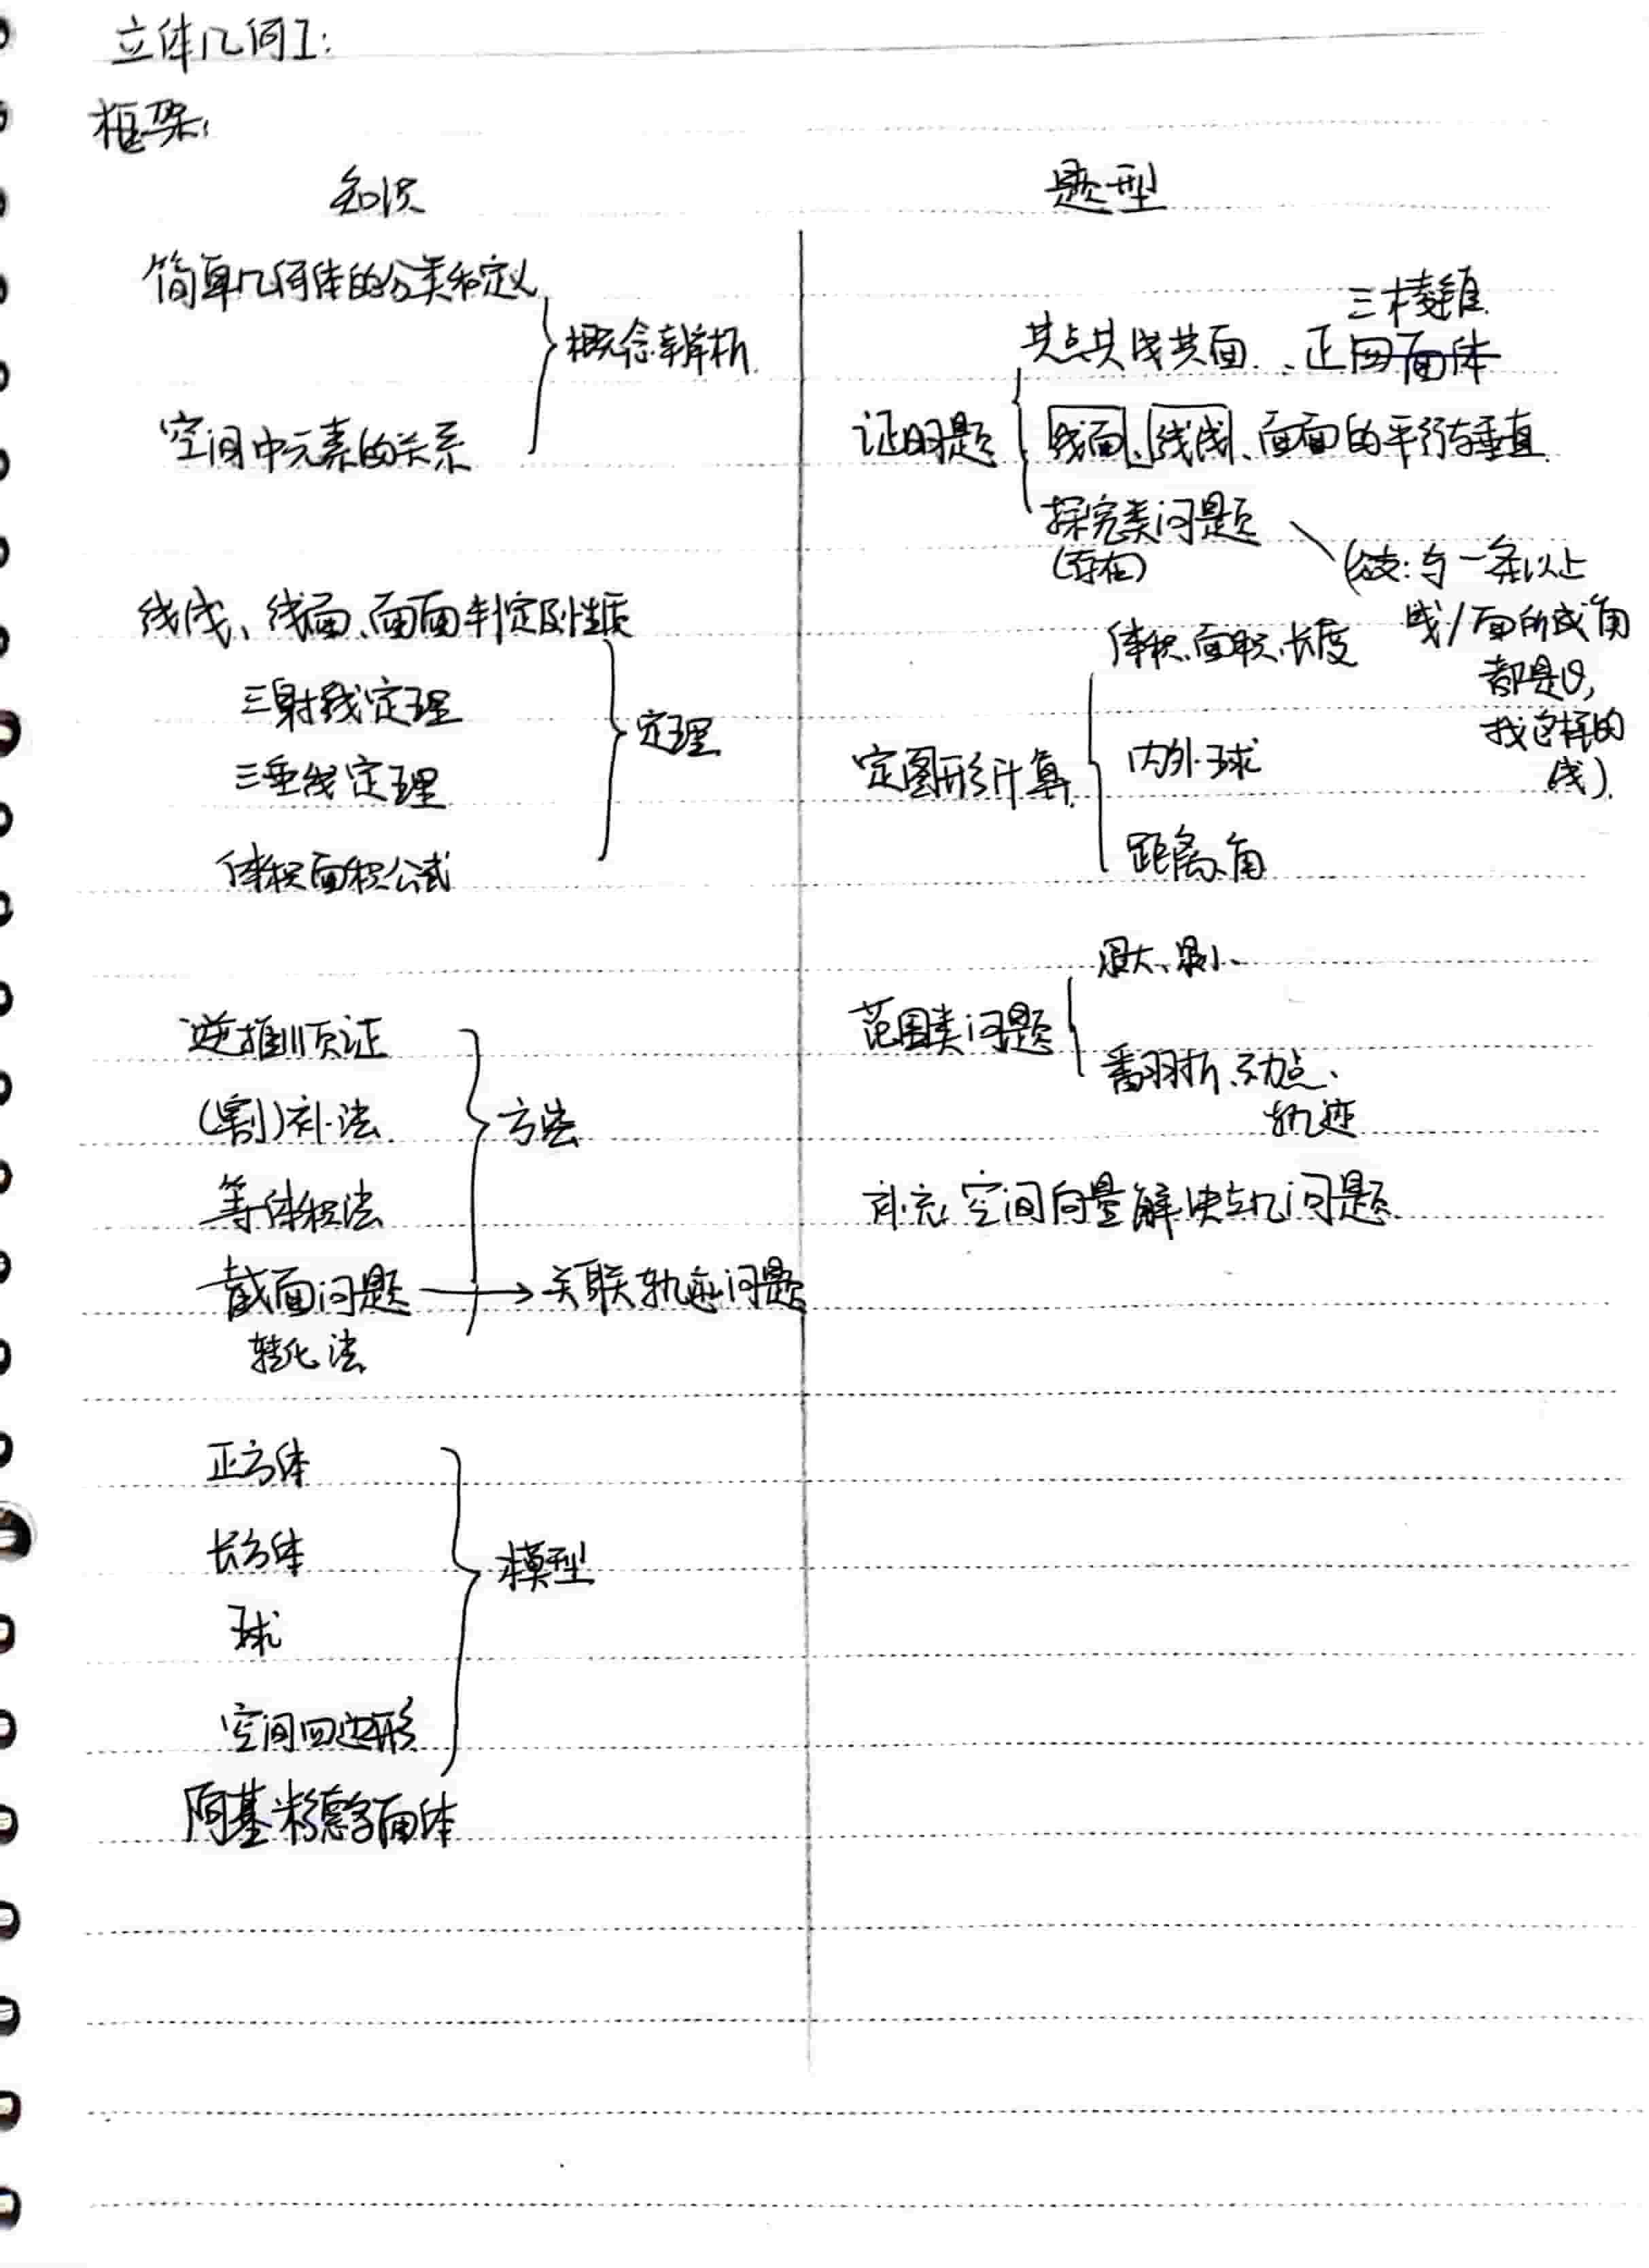 立体几何I:
框架:
知识
简单几何体的分类和定义
概念辨析
空间中元素的关系
线线、线面、面面判定及性质
三射线定理
三垂线定理
体积面积公式
定理
逆推顺证
(割)补法
等体积法
方法
截面问题 → 关联轨迹问题
转化法
正方体
长方体
球
空间四边形
模型
阿基米德多面体
题型
三棱锥
共点共线共面、正四面体
证明题
线面、线线、面面的平行与垂直
探究类问题
(存在)
与一条以上
线/面所成角
都是θ,
找这样的
线).
体积、面积、长度
定图形计算
内外球
距离、角
最大、最小、
范围类问题
翻折、动点、
轨迹
补充:空间向量解决立几问题